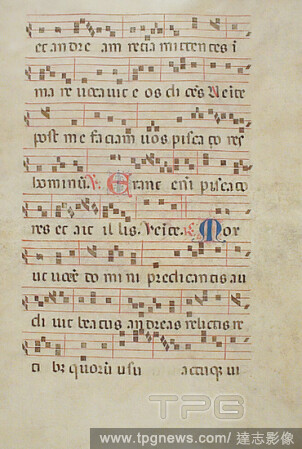 et andre am recia mittentes i
ma re vocavit e os dicēs Venite
post me faciam vos pisca to res
hominū. ℣. Erant eni pisca to
res et ait il lis. Venite. ℟. Mor
ut vocē do mini predicantis au
di vit beatus andreas relictis re
ti bꝰ quorū usu actuque vi
TPG
www.tpgnews.com/達志影像